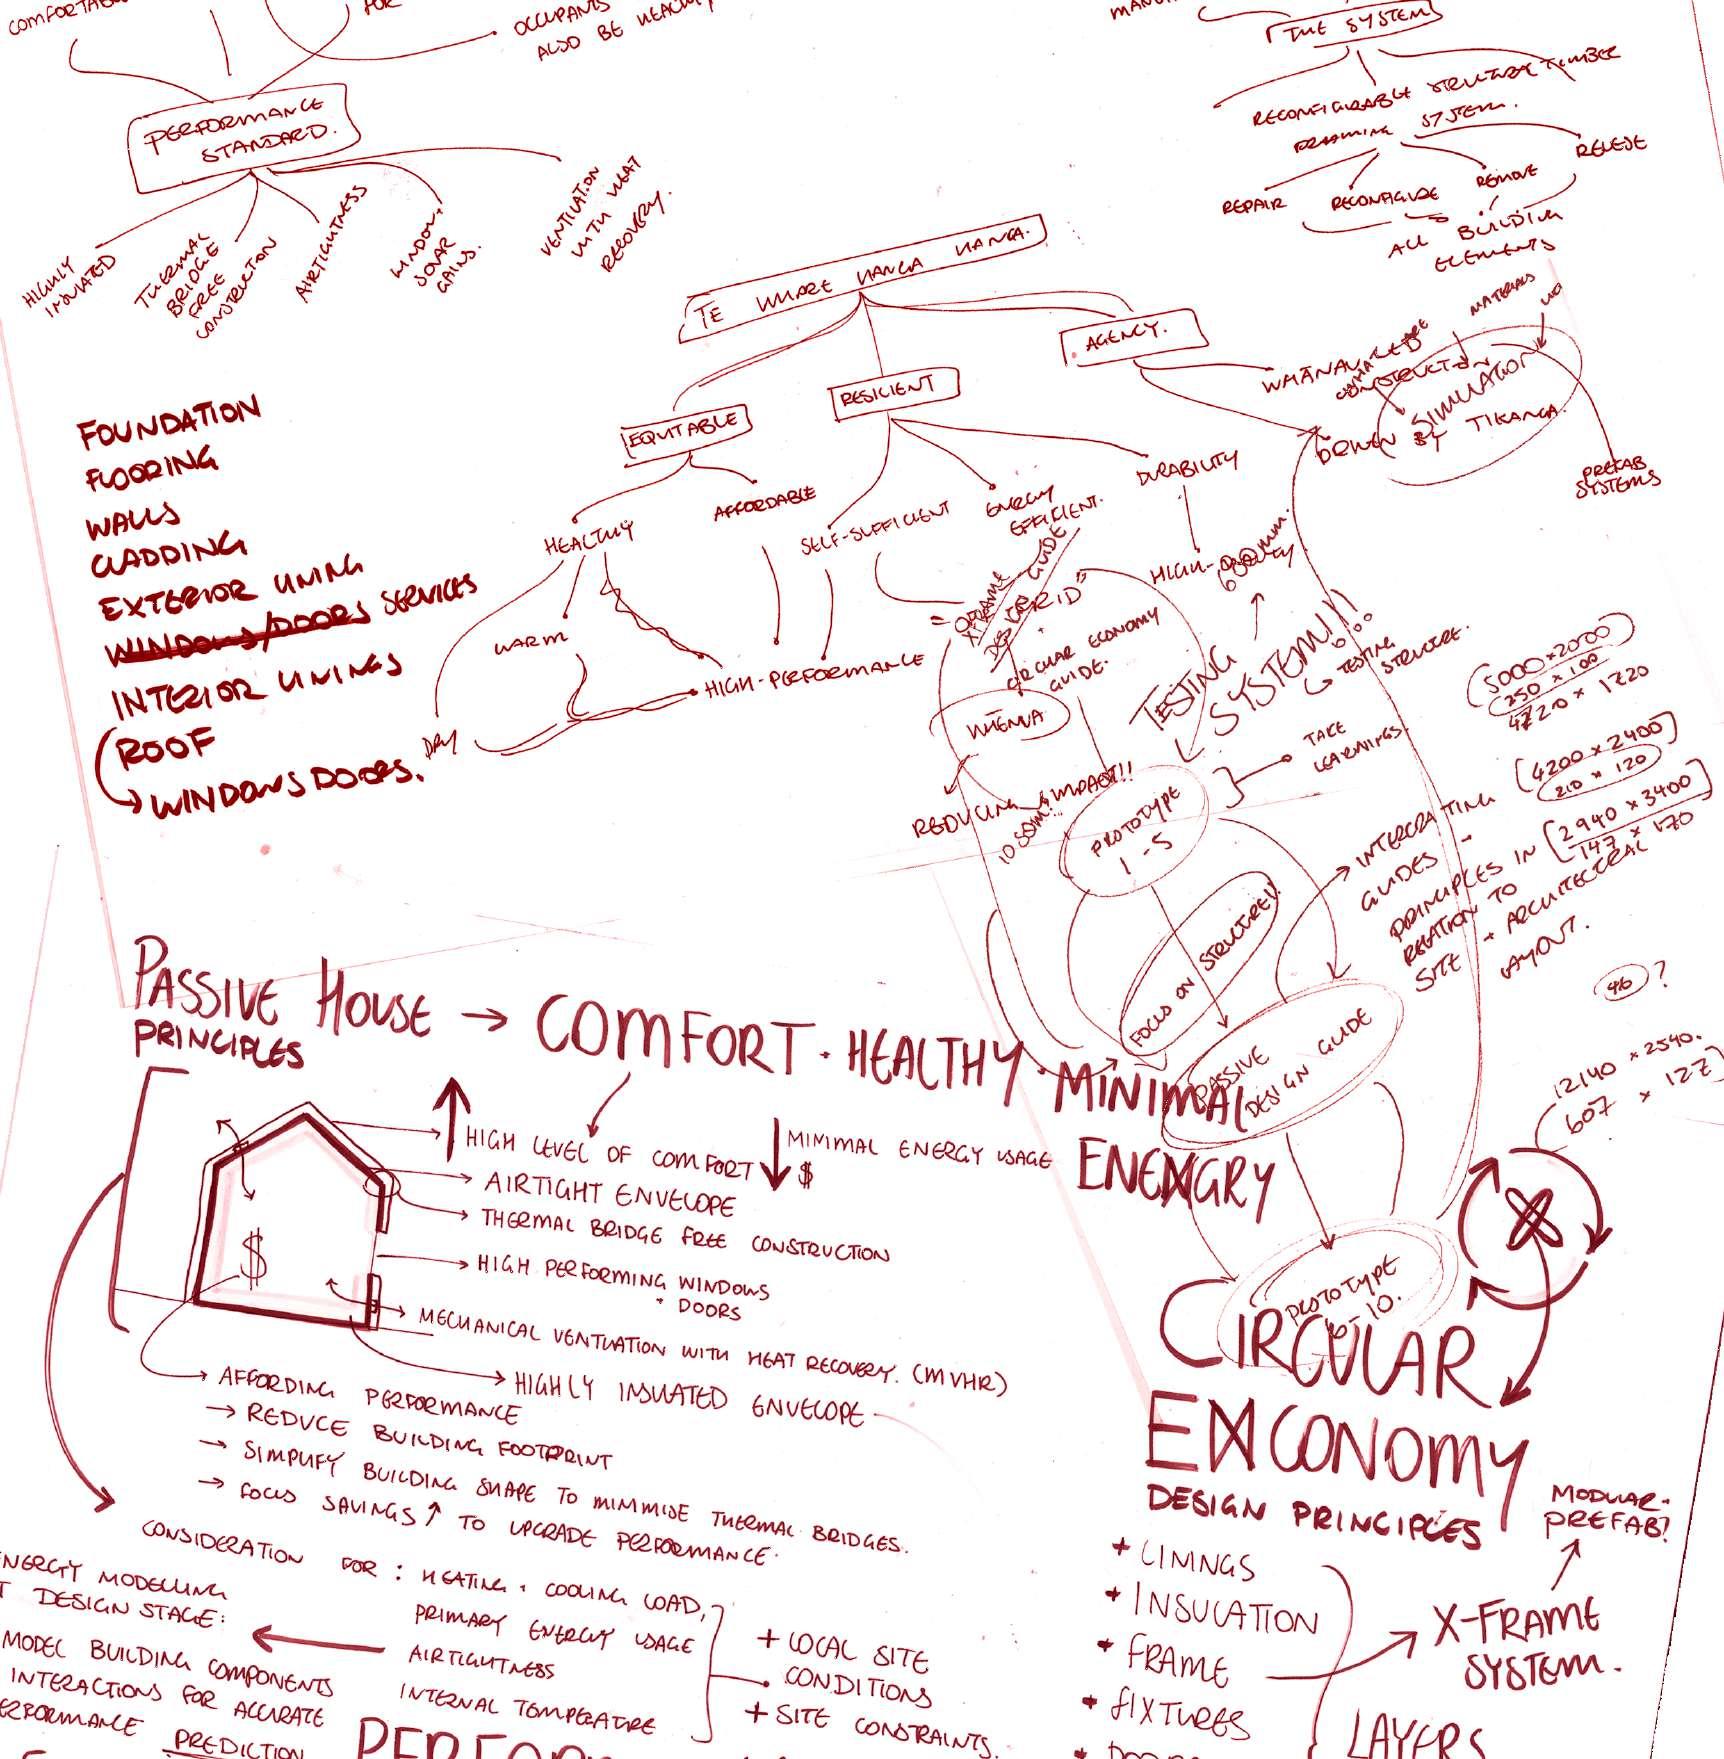 COMFORTABLE
FOR
OCCUPANTS
ALSO BE HEALTHY
PERFORMANCE
STANDARD.
HIGHLY
INSULATED
THERMAL
BRIDGE
FREE
CONSTRUCTION
AIRTIGHTNESS
WINDOW,
SOLAR
GAINS.
VENTILATION
WITH HEAT
RECOVERY.
THE SYSTEM
RECONFIGURABLE STRUCTURE TIMBER
FRAMING SYSTEM.
REPAIR
RECONFIGURE
REMOVE
REUSE
ALL BUILDING
ELEMENTS
MATERIALS
TE WHARE HANGA HANGA.
EQUITABLE
RESILIENT
AGENCY.
HEALTHY
AFFORDABLE
SELF-SUFFICIENT
ENERGY
EFFICIENT.
DURABILITY
WHĀNAU
CONSTRUCTION
SIMULATION
DRIVEN BY TIKANGA.
PREFAB
SYSTEMS
WARM
DRY
HIGH-PERFORMANCE
HIGH-QUALITY
600mm.
FOUNDATION
FLOORING
WALLS
CLADDING
EXTERIOR LINING
WINDOWS/DOORS SERVICES
INTERIOR LININGS
ROOF
WINDOWS DOORS.
X FRAME
DESIGN GUIDE
CIRCULAR ECONOMY
GUIDE.
WHENUA
REDUCING IMPACT!!
TESTING
SYSTEM!!
TESTING
STRUCTURE.
TAKE
LEARNINGS.
PROTOTYPE
1-5
FOCUS ON STRUCTURE!!
PASSIVE
DESIGN GUIDE
PROTOTYPE
6-10.
(5000 x 2000)
250 x 100
4720 x 1720
(4200 x 2400)
210 x 120
INTEGRATING
GUIDES -
PRINCIPLES IN
RELATION TO
SITE + ARCHITECTURAL
LAYOUT.
[2940 x 3400]
147 x 170
46 ?
12140 x 2540.
607 x 127
PASSIVE HOUSE → COMFORT · HEALTHY · MINIMAL
ENEXGRY
PRINCIPLES
HIGH LEVEL OF COMFORT
MINIMAL ENERGY USAGE
$
AIRTIGHT ENVELOPE
THERMAL BRIDGE FREE CONSTRUCTION
HIGH PERFORMING WINDOWS
+ DOORS
$
MECHANICAL VENTILATION WITH HEAT RECOVERY. (MVHR)
HIGHLY INSULATED ENVELOPE
AFFORDING PERFORMANCE
→ REDUCE BUILDING FOOTPRINT
→ SIMPLIFY BUILDING SHAPE TO MINIMISE THERMAL BRIDGES.
→ FOCUS SAVINGS ↑ TO UPGRADE PERFORMANCE.
CONSIDERATION FOR : HEATING + COOLING LOAD,
PRIMARY ENERGY USAGE
AIRTIGHTNESS
INTERNAL TEMPERATURE
+ LOCAL SITE
CONDITIONS
+ SITE CONSTRAINTS.
ENERGY MODELLING
DESIGN STAGE:
MODEL BUILDING COMPONENTS
INTERACTIONS FOR ACCURATE
PERFORMANCE PREDICTION
CIRCULAR
EXCONOMY
DESIGN PRINCIPLES
+ LININGS
+ INSULATION
+ FRAME
+ FIXTURES
X-FRAME
SYSTEM.
MODULAR-
PREFAB?
LAYERS